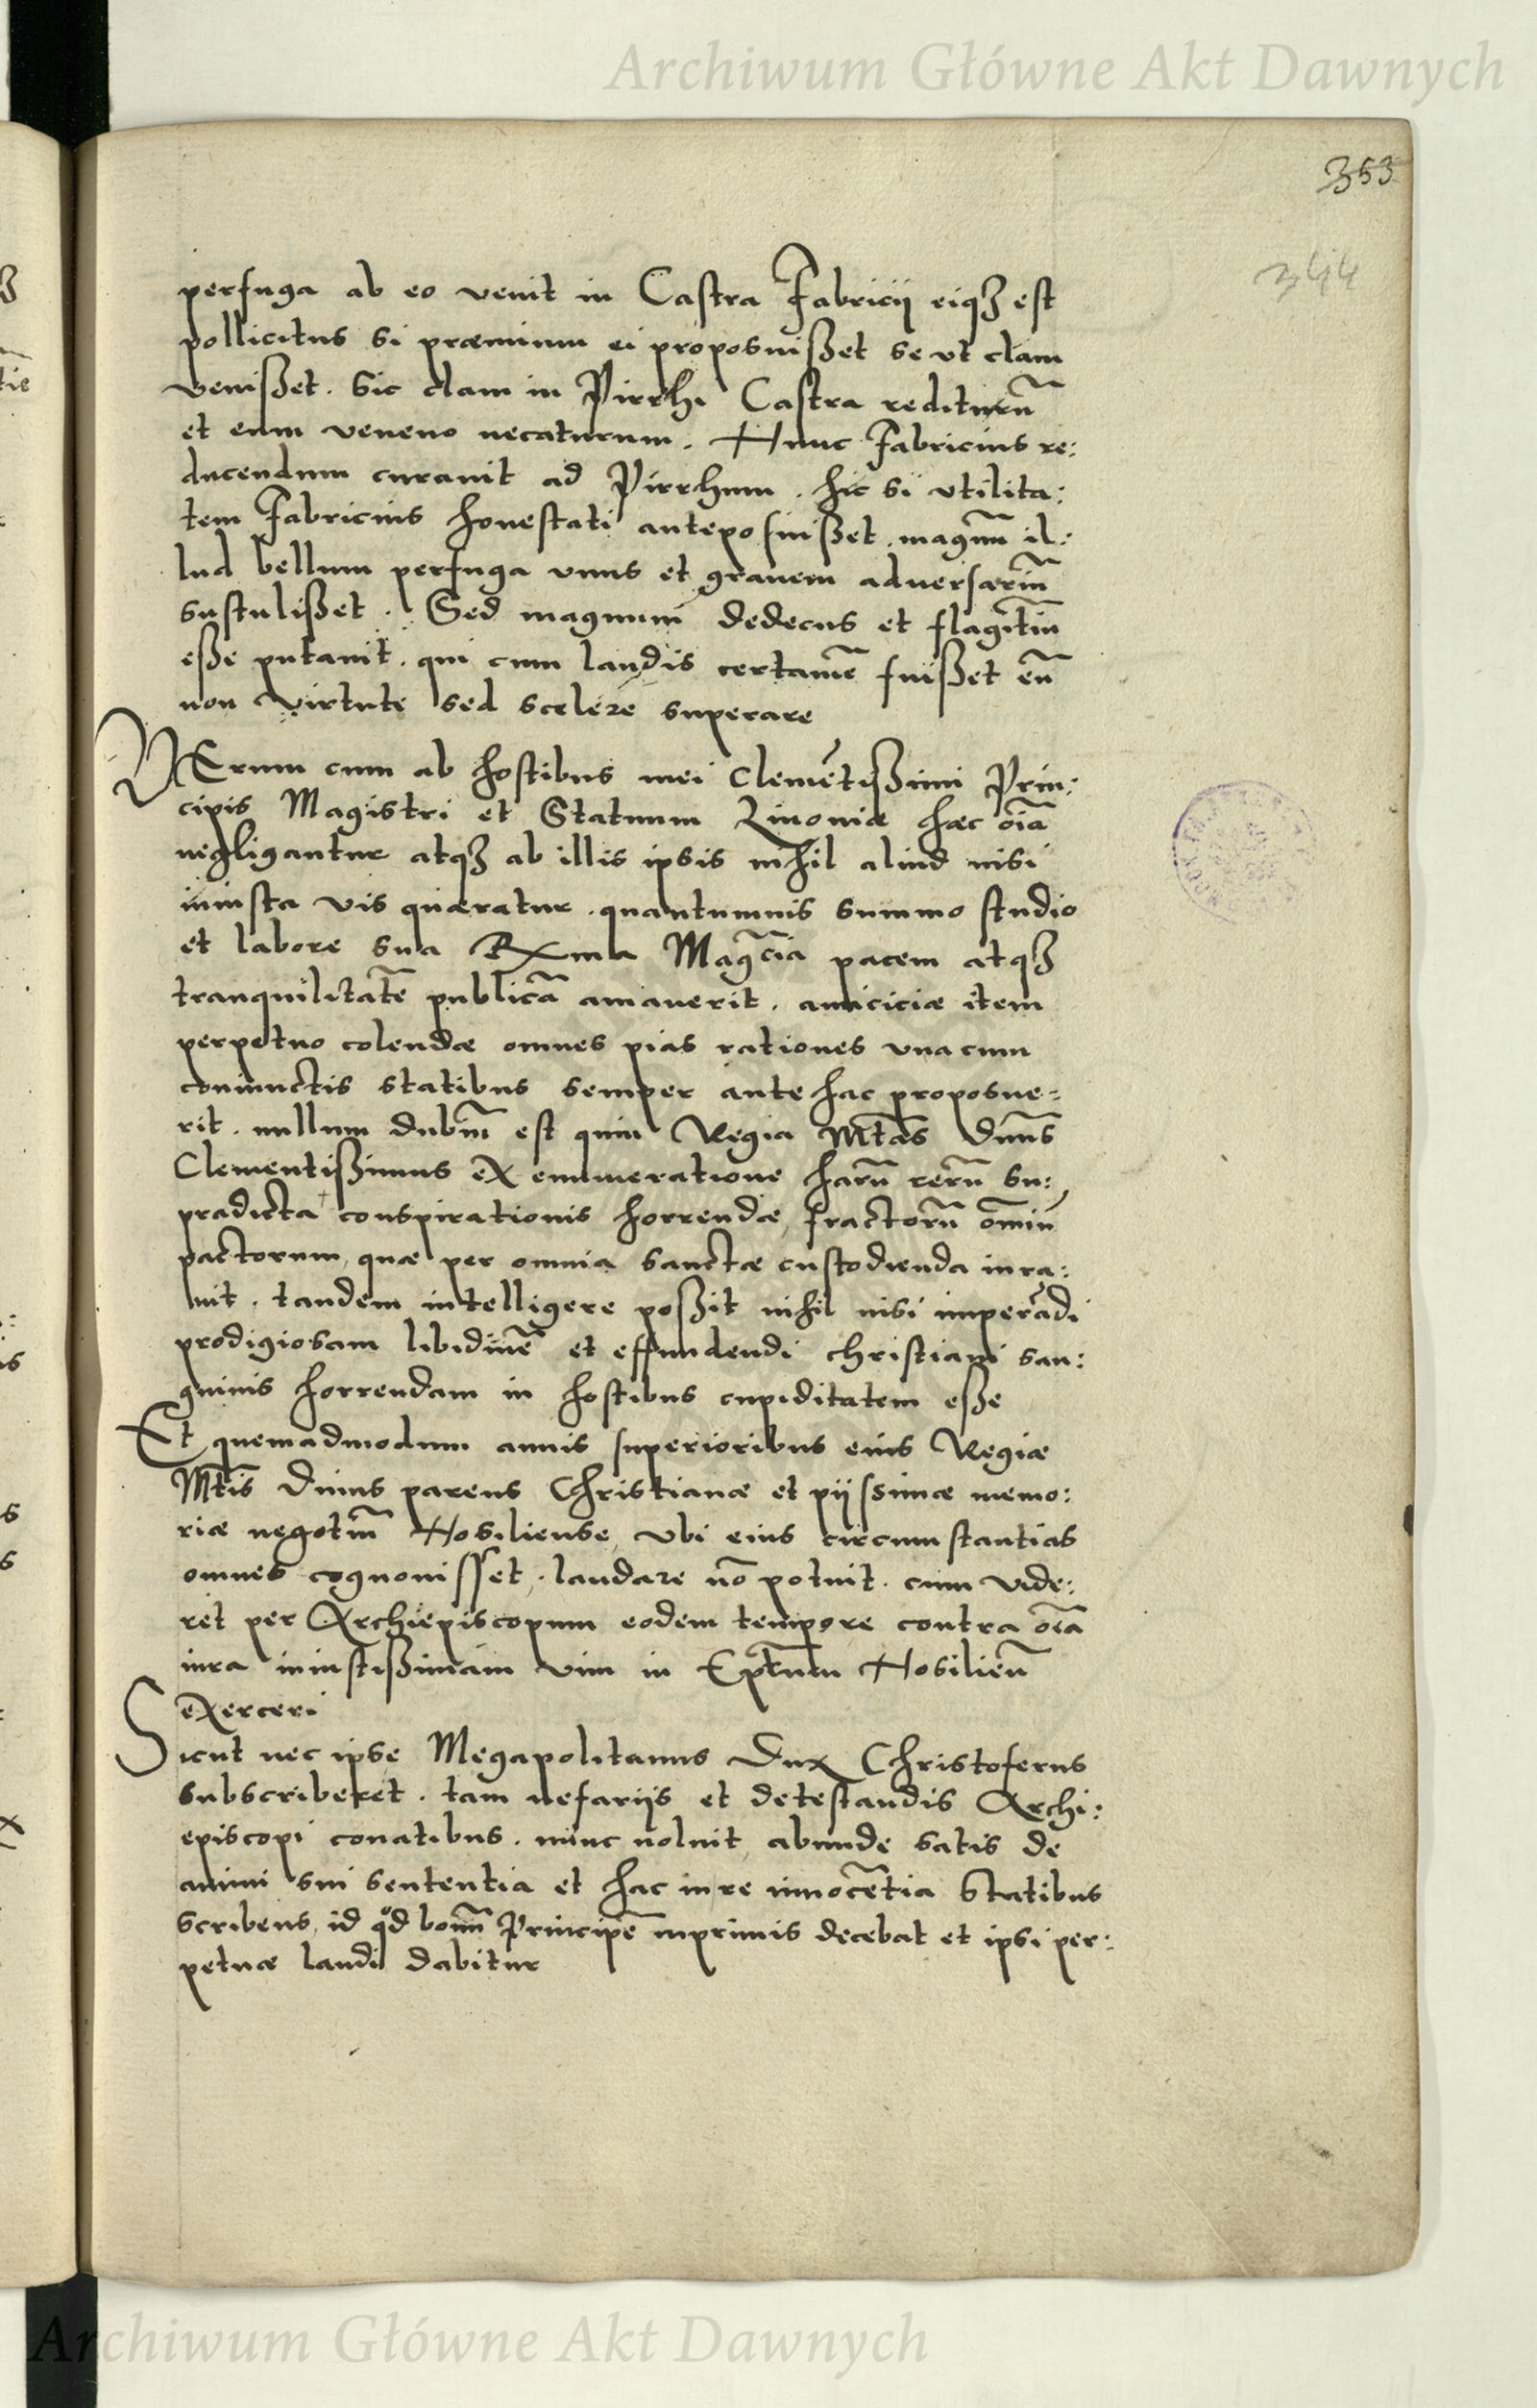 Archiwum Główne Akt Dawnych
353
344
perfuga ab eo venit in Castra Fabricij eiqȝ est
pollicitus si præmium ei proposuißet se vt clam
venißet. Sic clam in Pirrhi Castra rediturū
et eum veneno necaturum. Hunc Fabricius re:
ducendum curauit ad Pirrhum. hic si vtilita:
tem Fabricius honestati anteposuißet. magnū il:
lud bellum perfuga vnus et grauem aduersariū
sustulißet. Sed magnum dedecus et flagitiū
eße putauit. qui cum laudis certamē fuißet eū
non virtute sed scelere superare
VErum cum ab hostibus mei Clemētißimi Prin:
cipis Magistri et Statuum Liuoniæ hæc oīa
negligantur atqȝ ab illis ipsis nihil aliud nisi
iniusta vis quæratur. quantumuis summo studio
et labore sua Rxma Magcīa pacem atqȝ
tranquilitatē publicā amauerit. amiciciæ item
perpetuo colendæ omnes pias rationes vna cum
coniunctis statibus semper ante hac proposue=
rit. nullum dubiū est quin Regia Mtās Dnūs
Clementißimus ex enumeratione harū rerū su:
pradicta conspirationis horrendæ, fractorū omniū
pactorum, quæ per omnia sanctæ custodienda iura:
uit. tandem intelligere poßit nihil nisi imperādi
prodigiosam libidinē et effundendi christiani san:
guinis horrendam in hostibus cupiditatem eße
Et quemadmodum annis superioribus eius Regiæ
Mtīs Diuus parens Christianæ et pijssimæ memo:
riæ negotiū Hosiliense, vbi eius circumstantias
omnes cognouisset,. laudare nō potuit. cum vide:
ret per Archiepiscopum eodem tempore contra oīa
iura iniustißimam vim in Eptūm Hosilieñ
exerceri
Sicut nec ipse Megapolitanus Dux Christoferus
subscriberet. tam nefarijs et detestandis Archi:
episcopi conatibus. nunc voluit, abunde satis de
animi sui sententia et hac in re innocētia Statibus
scribens, id qd bonū Principē inprimis decebat et ipsi per:
petuæ laudi dabitur
Archiwum Główne Akt Dawnych